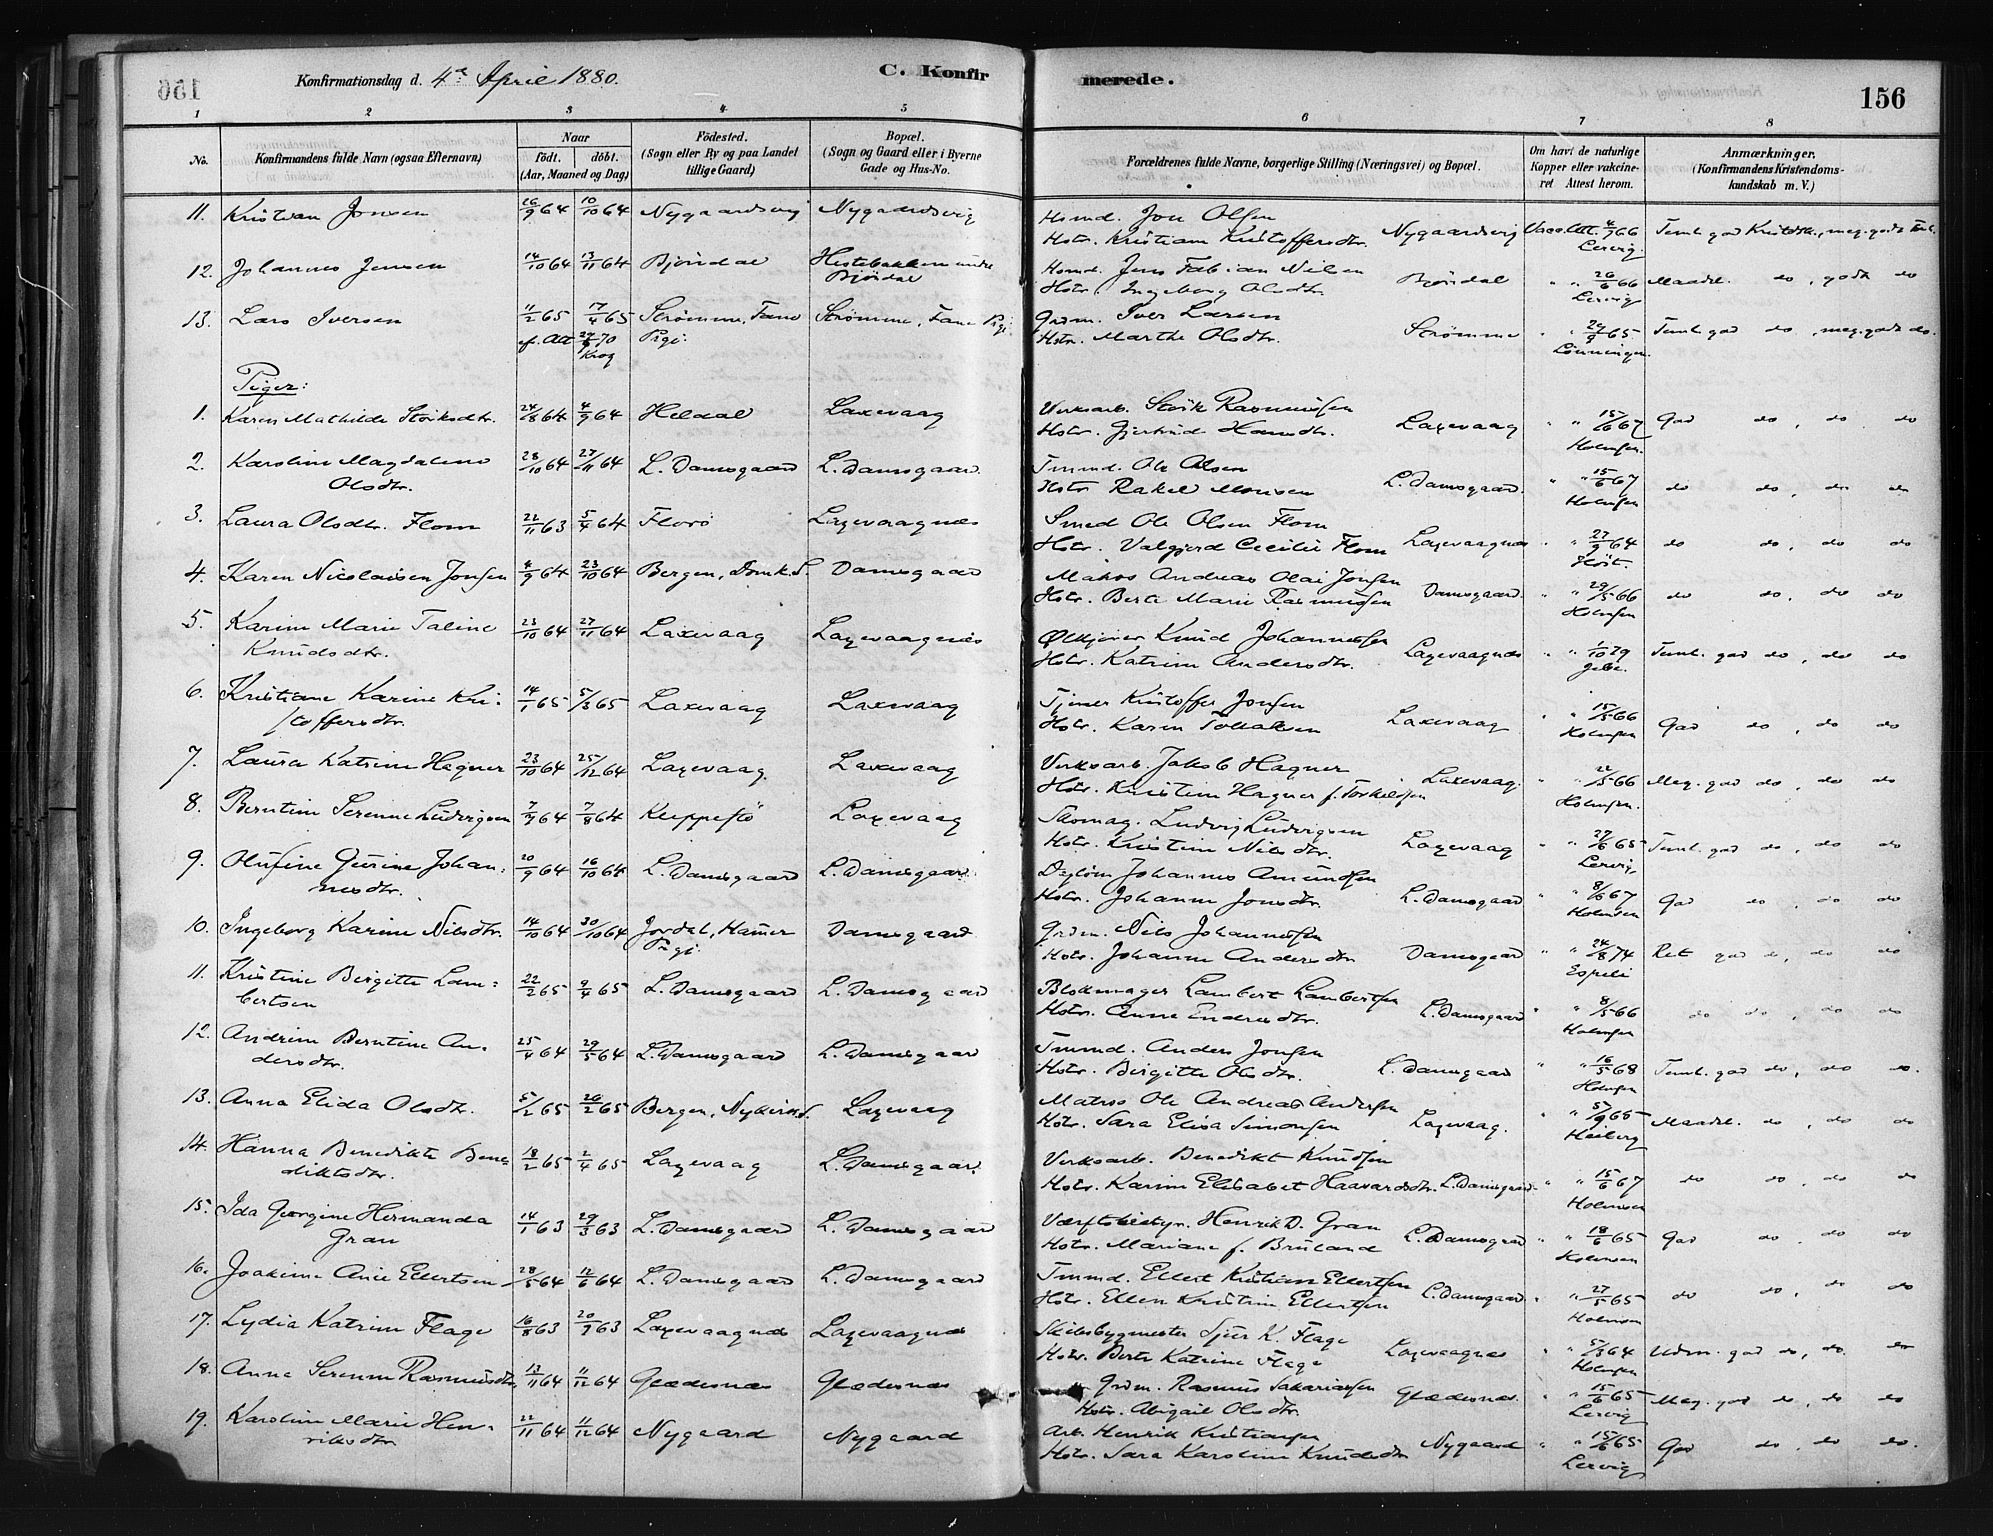 156
Konfirmationsdag d. 4de April 1880.
C. Konfirmerede.
156
1 2 3 4 5 6 7 8
No.
Konfirmandens fulde Navn (ogsaa Efternavn)
Naar
födt. döbt.
(Aar, Maaned og Dag)
Födested.
(Sogn eller By og paa Landet
tillige Gaard)
Bopæl.
(Sogn og Gaard eller i Byerne
Gade og Hus-No.
Forældrenes fulde Navne, borgerlige Stilling (Næringsvei) og Bopæl.
Om havt de naturlige
Kopper eller vakcineret Attest herom.
Anmærkninger.
(Konfirmandens Kristendomskundskab m. V.)
11. Kristian Jonsen 26/9 64 10/10 64 Nygaardsvig Nygaardsvig Hsmd. Jon Olsen
Hstr. Kristiane Kristoffersdtr. Nygaardsvig Vacc. Att. 4/7 66 Lervig
12. Johannes Jensen 14/10 64 13/11 64 Bjørndal Hestebakken under
Bjørndal Hsmd. Jens Fabian Nilsen
Hstr. Ingeborg Olsdtr. Bjørndal " " 26/6 66 Lervig Maadl. do, godt do
13. Lars Iversen 11/2 65 17/4 65 Strømme, Fane Prgj. Strømme, Fane Prgj. Grdm. Iver Larsen
Hstr. Marthe Olsdtr. Strømme " " 29/9 65 Lønningen Teml. god do, meg. godt do.
ef. Att. Krog
Piger:
1. Karen Mathilde Støriksdtr. 24/8 64 4/9 64 Heldal Laxevaag Verksarb. Størik Rasmussen
Hstr. Gjertrud Hansdtr. Laxevaag " " 15/6 67 Holmsen. God do, do do
2. Karoline Magdalene
Olsdtr. 28/10 64 27/11 64 L. Damsgaard L. Damsgaard Tmmd. Ole Olsen
Hstr. Rakel Monsen L. Damsgaard. " " 15/6 67 Holmsen do do, do do
3. Laura Olsdtr. Flom 22/11 63 5/4 64 Florø Laxevaagnæs Smed Ole Olsen Flom
Hstr. Valgjerd Cecilie Flom Laxevaagnæs " " 27/9 64 do do, do do
4. Karen Nicolaisen Jonsen 4/9 64 23/10 64 Bergen, Domk. S. Damsgaard Matros Andreas Olai Jonsen
Hstr. Berte Marie Rasmussen Damsgaard. " " 29/5 66 Holmsen do do, do do
5. Karine Marie Taline
Knudsdtr. 23/10 64 27/11 64 Laxevaag Laxevaagnæs Ølkjører Knud Johannessen
Hstr. Katrine Andersdtr. Laxevaagnæs " " 1/10 79 Teml. god do, do do
6. Kristiane Karine Kristoffersdtr. 14/1 65 5/3 65 Laxevaag Laxevaag Tjener Kristoffer Jonsen
Hstr. Karen Tollaksen Laxevaag " " 15/5 66 Holmsen God do, do do
7. Laura Katrine Hagner 23/10 64 25/12 64 Laxevaag Laxevaag Verksarb. Jakob Hagner
Hstr. Kristine Hagner f. Torkildsen Laxevaag. " " /5 66 Holmsen. Meg. god do, do do
8. Berntine Serenne Ludvigsen 7/7 64 7/8 64 Kleppestø Laxevaag Skomag. Ludvig Ludvigsen
Hstr. Kristine Nilsdtr. Laxevaag " " 27/6 65 Lervig Teml. god do, do do
9. Olufine Gurine Johannesdtr. 20/9 64 16/10 64 L. Damsgaard L. Damsgaard Dagløn. Johannes Amundsen
Hstr. Johanne Jonsdtr. L. Damsgaard " " 8/6 67 Holmsen God do, do do
10. Ingeborg Karine Nilsdtr. 14/10 64 30/10 64 Jordal, Hamer
Prgj. Damsgaard Grdm. Nils Johannessen
Hstr. Johanne Andersdtr Damsgaard " " 24/8 74 Espeli Ret god do, do do
11. Kristine Birgitte Lambertsen 22/2 65 9/4 65 L. Damsgaard L. Damsgaard Blokmager Lambert Lambertsen
Hstr. Anne Endresdtr. L. Damsgaard " " 8/5 66 Holmsen do do, do do
12. Andrine Berntine Andersdtr. 25/4 64 29/5 64 L. Damsgaard L. Damsgaard Tmmd. Anders Jonsen
Hstr. Birgitte Olsdtr. L. Damsgaard " " 16/5 68 Holmsen Teml. god do, do do.
13. Anna Elida Olsdtr. 5/2 65 26/2 65 Bergen, Nykirk S. Laxevaag Matros Ole Andreas Andersen
Hstr. Sara Elisa Simonsen Laxevaag. " " 5/9 65 Heiberg Maadl. do, do do
14. Hanna Benedikte Benediktsdtr. 18/2 65 2/4 65 Laxevaag L. Damsgaard Verksarb. Benedikt Knudsen
Hstr. Karine Elisabet Haavardsdtr. L. Damsgaard " " 15/6 67 Holmsen do do, do do
15. Ida Georgine Hermanda
Gran 14/1 63 29/3 63 L. Damsgaard L. Damsgaard Værftsbestyr. Henrik D. Gran
Hstr. Mariane f. Bruland L. Damsgaard " " 18/6 65 Holmsen God do, do do
16. Joakime Anie Ellertsen 28/5 64 12/6 64 L. Damsgaard L. Damsgaard Tmmd. Ellert Kristian Ellertsen
Hstr. Ellen Kristine Ellertsen L. Damsgaard " " 27/5 65 Holmsen do do, do do
17. Lydia Katrine Flage 16/8 63 20/9 63 Laxevaagnæs Laxevaagnæs Skibsbygmester Sjur K. Flage
Hstr. Berte Katrine Flage Laxevaagnæs " " 5/3 64 Holmsen Udm. god do, do. do
18. Anna Serenne Rasmusdtr. 13/11 64 11/12 64 Glædesnæs Glædesnæs Grdm. Rasmus Sakariassen
Hstr. Abigail Olsdtr. Glædesnæs. " " 15/6 65 Lervig Meg. god do, do do
19. Karoline Marie Henriksdtr 22/11 64 11/12 64 Nygaard Nygaard Arb. Henrik Kristiansen
Hstr. Sara Karoline Knudsdtr Nygaard " " 15/6 65 Lervig God do, do do.